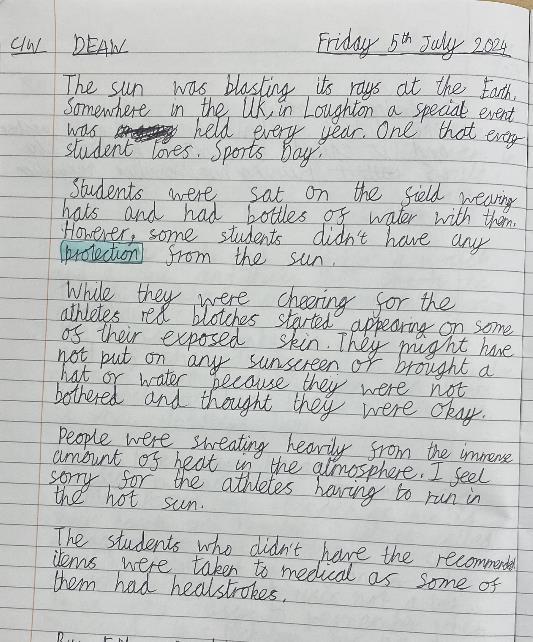 C/W DEAW Friday 5th July 2024
The sun was blasting its rays at the Earth.
Somewhere in the UK, in Loughton a special event
was held every year. One that every
student loves. Sports Day.
Students were sat on the field wearing
hats and had bottles of water with them.
However, some students didn't have any
protection from the sun.
While they were cheering for the
athletes red blotches started appearing on some
of their exposed skin. They might have
not put on any sunscreen or brought a
hat or water because they were not
bothered and thought they were okay.
People were sweating heavily from the immense
amount of heat in the atmosphere. I feel
sorry for the athletes having to run in
the hot sun.
The students who didn't have the recommended
items were taken to medical as some of
them had heatstrokes.